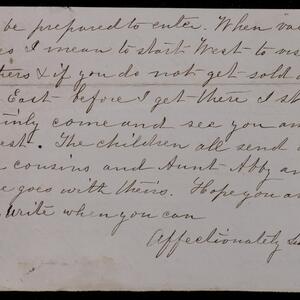 be prepared to enter. When va
es I mean to start West to vis
thers & if you do not get sold
East before I get there I sh
ainly come and see you an
est. The children all send
cousins and Aunt Abby an
e goes with theirs. Hope you a
write when you can
Affectionately